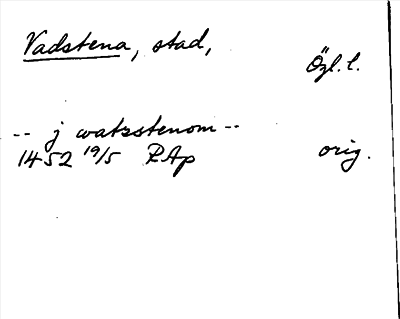 Vadstena, stad,
Ögl. l.
-- j watsstenom --
1452 19/5 RAp orig.